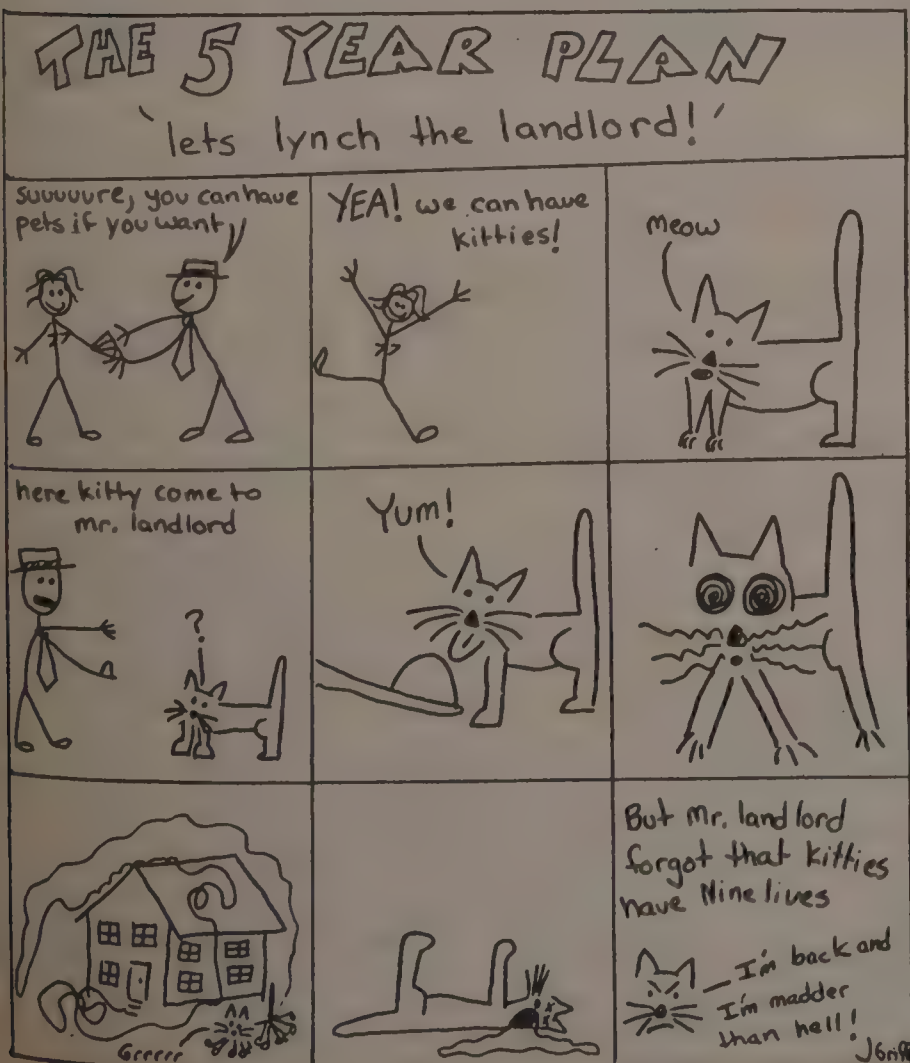 THE 5 YEAR PLAN
'lets lynch the landlord!'
suuuuure, you can have
pets if you want
YEA! we can have
kitties!
meow
here kitty come to
mr. landlord
?
Yum!
Grrrrrr
But Mr. landlord
forgot that kitties
have Nine lives
I'm back and
I'm madder
than hell!